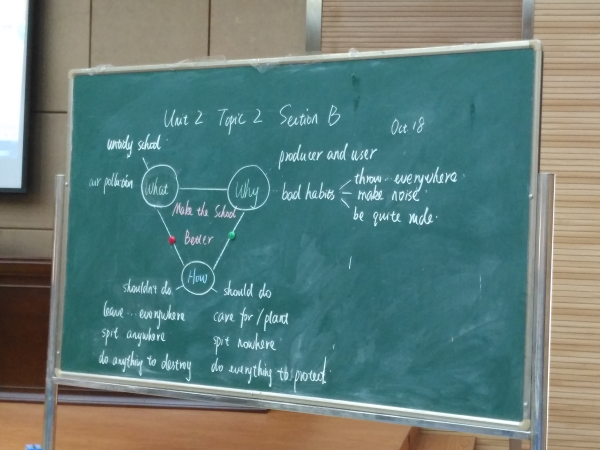 Unit 2 Topic 2 Section B
Oct 18
untidy school
air pollution
What
Why
producer and user
bad habits
throw... everywhere.
make noise.
be quite rude.
Make the School
Better
How
shouldn't do
leave... everywhere
spit anywhere
do anything to destroy
should do
care for/plant
spit nowhere
do everything to protect